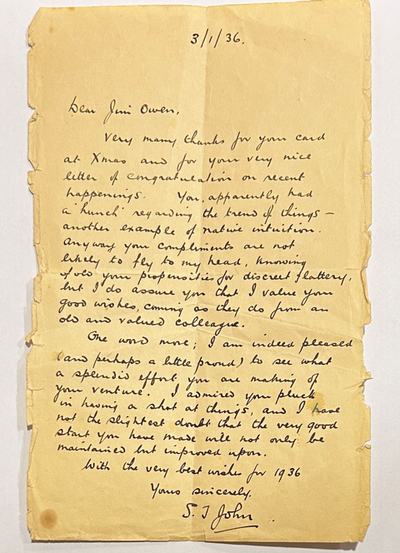 3/1/36.
Dear Jim Owen,
Very many thanks for your card
at Xmas and for your very nice
letter of congratulation on recent
happenings. You, apparently had
a 'hunch' regarding the trend of things –
another example of native intuition.
Anyway your compliments are not
likely to fly to my head, knowing
of old your propensities for discreet flattery,
but I do assure you that I value your
good wishes, coming as they do from an
old and valued colleague.
One word more; I am indeed pleased
(and perhaps a little proud) to see what
a splendid effort you are making of
your venture. I admired your pluck
in having a shot at things, and I have
not the slightest doubt that the very good
start you have made will not only be
maintained but improved upon.
With the very best wishes for 1936
Yours sincerely,
S. J John